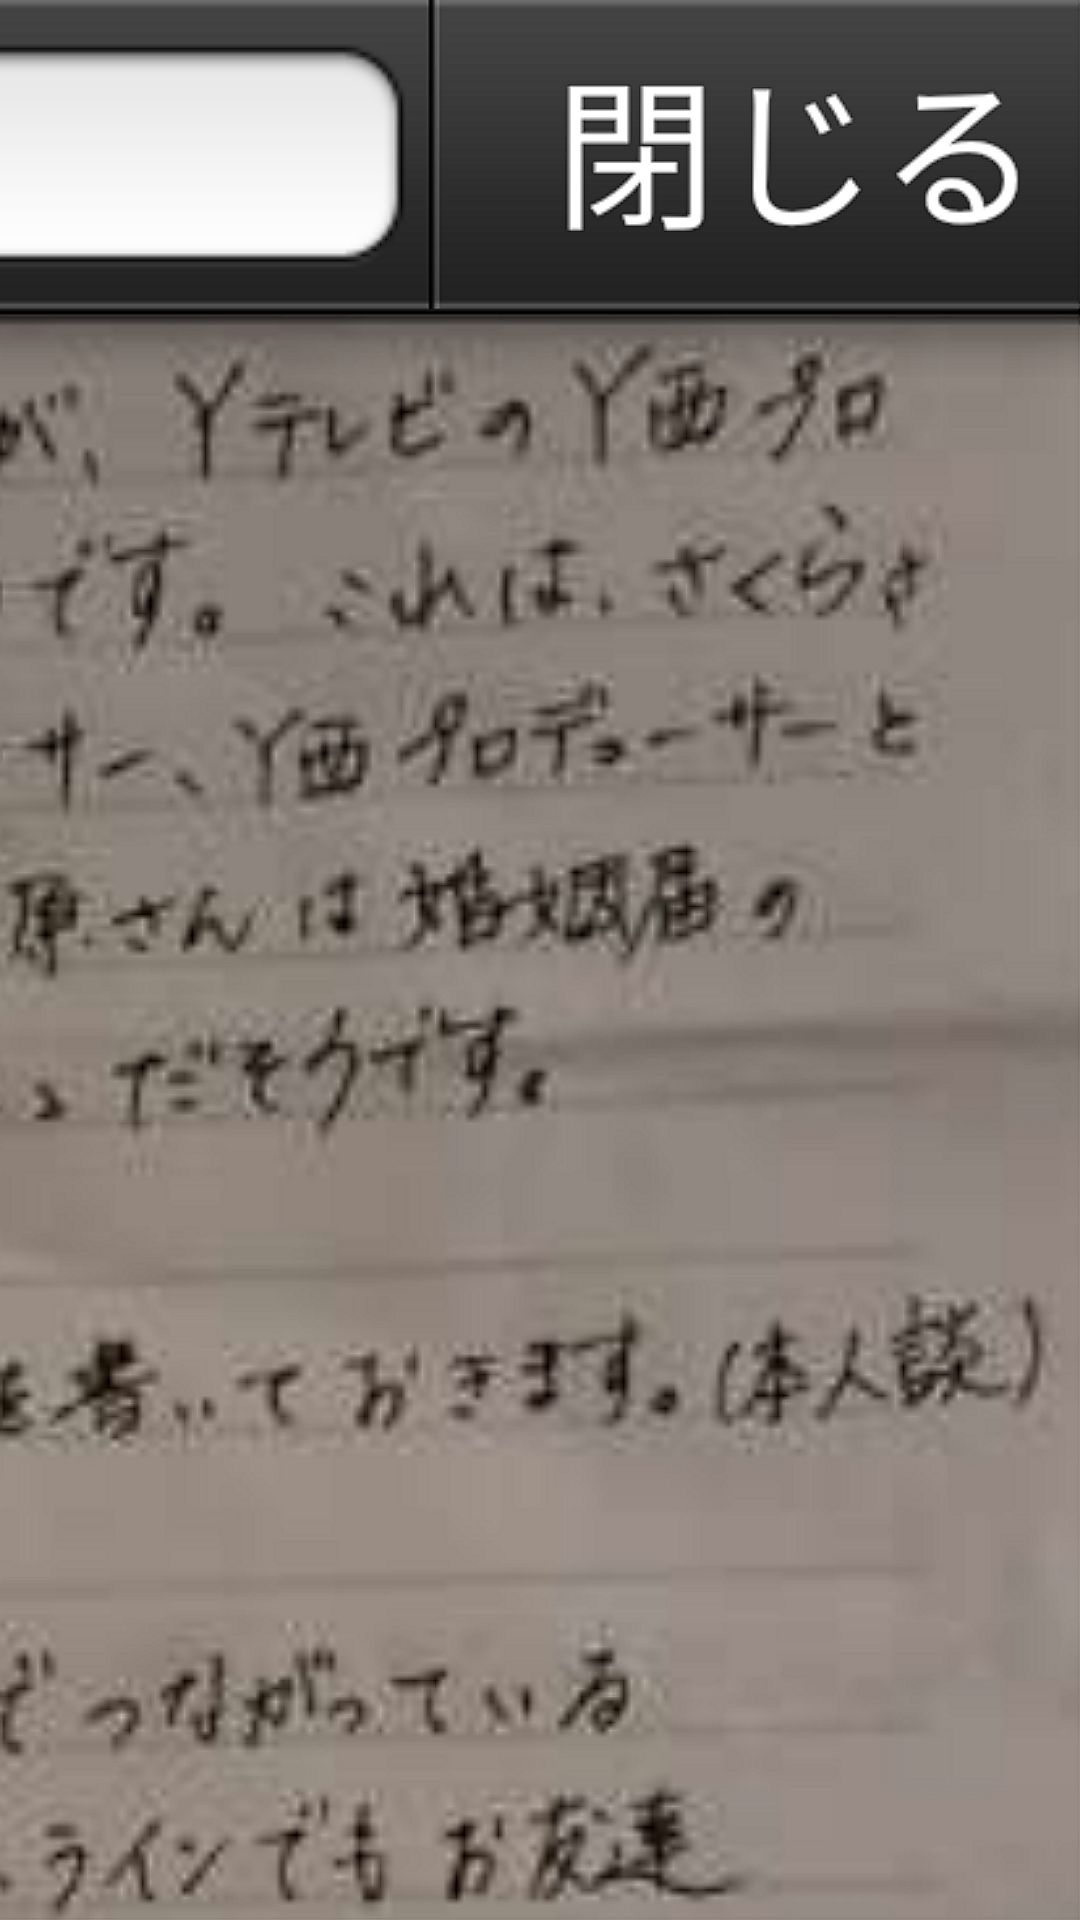 閉じる
が、Yテレビの Y西プロ
です。 これは、さくらさ
サー、Y西プロデューサーと
原さんは婚姻届の
だそうです。
を書いておきます。(本人談)
でつながっている
ラインでもお友達